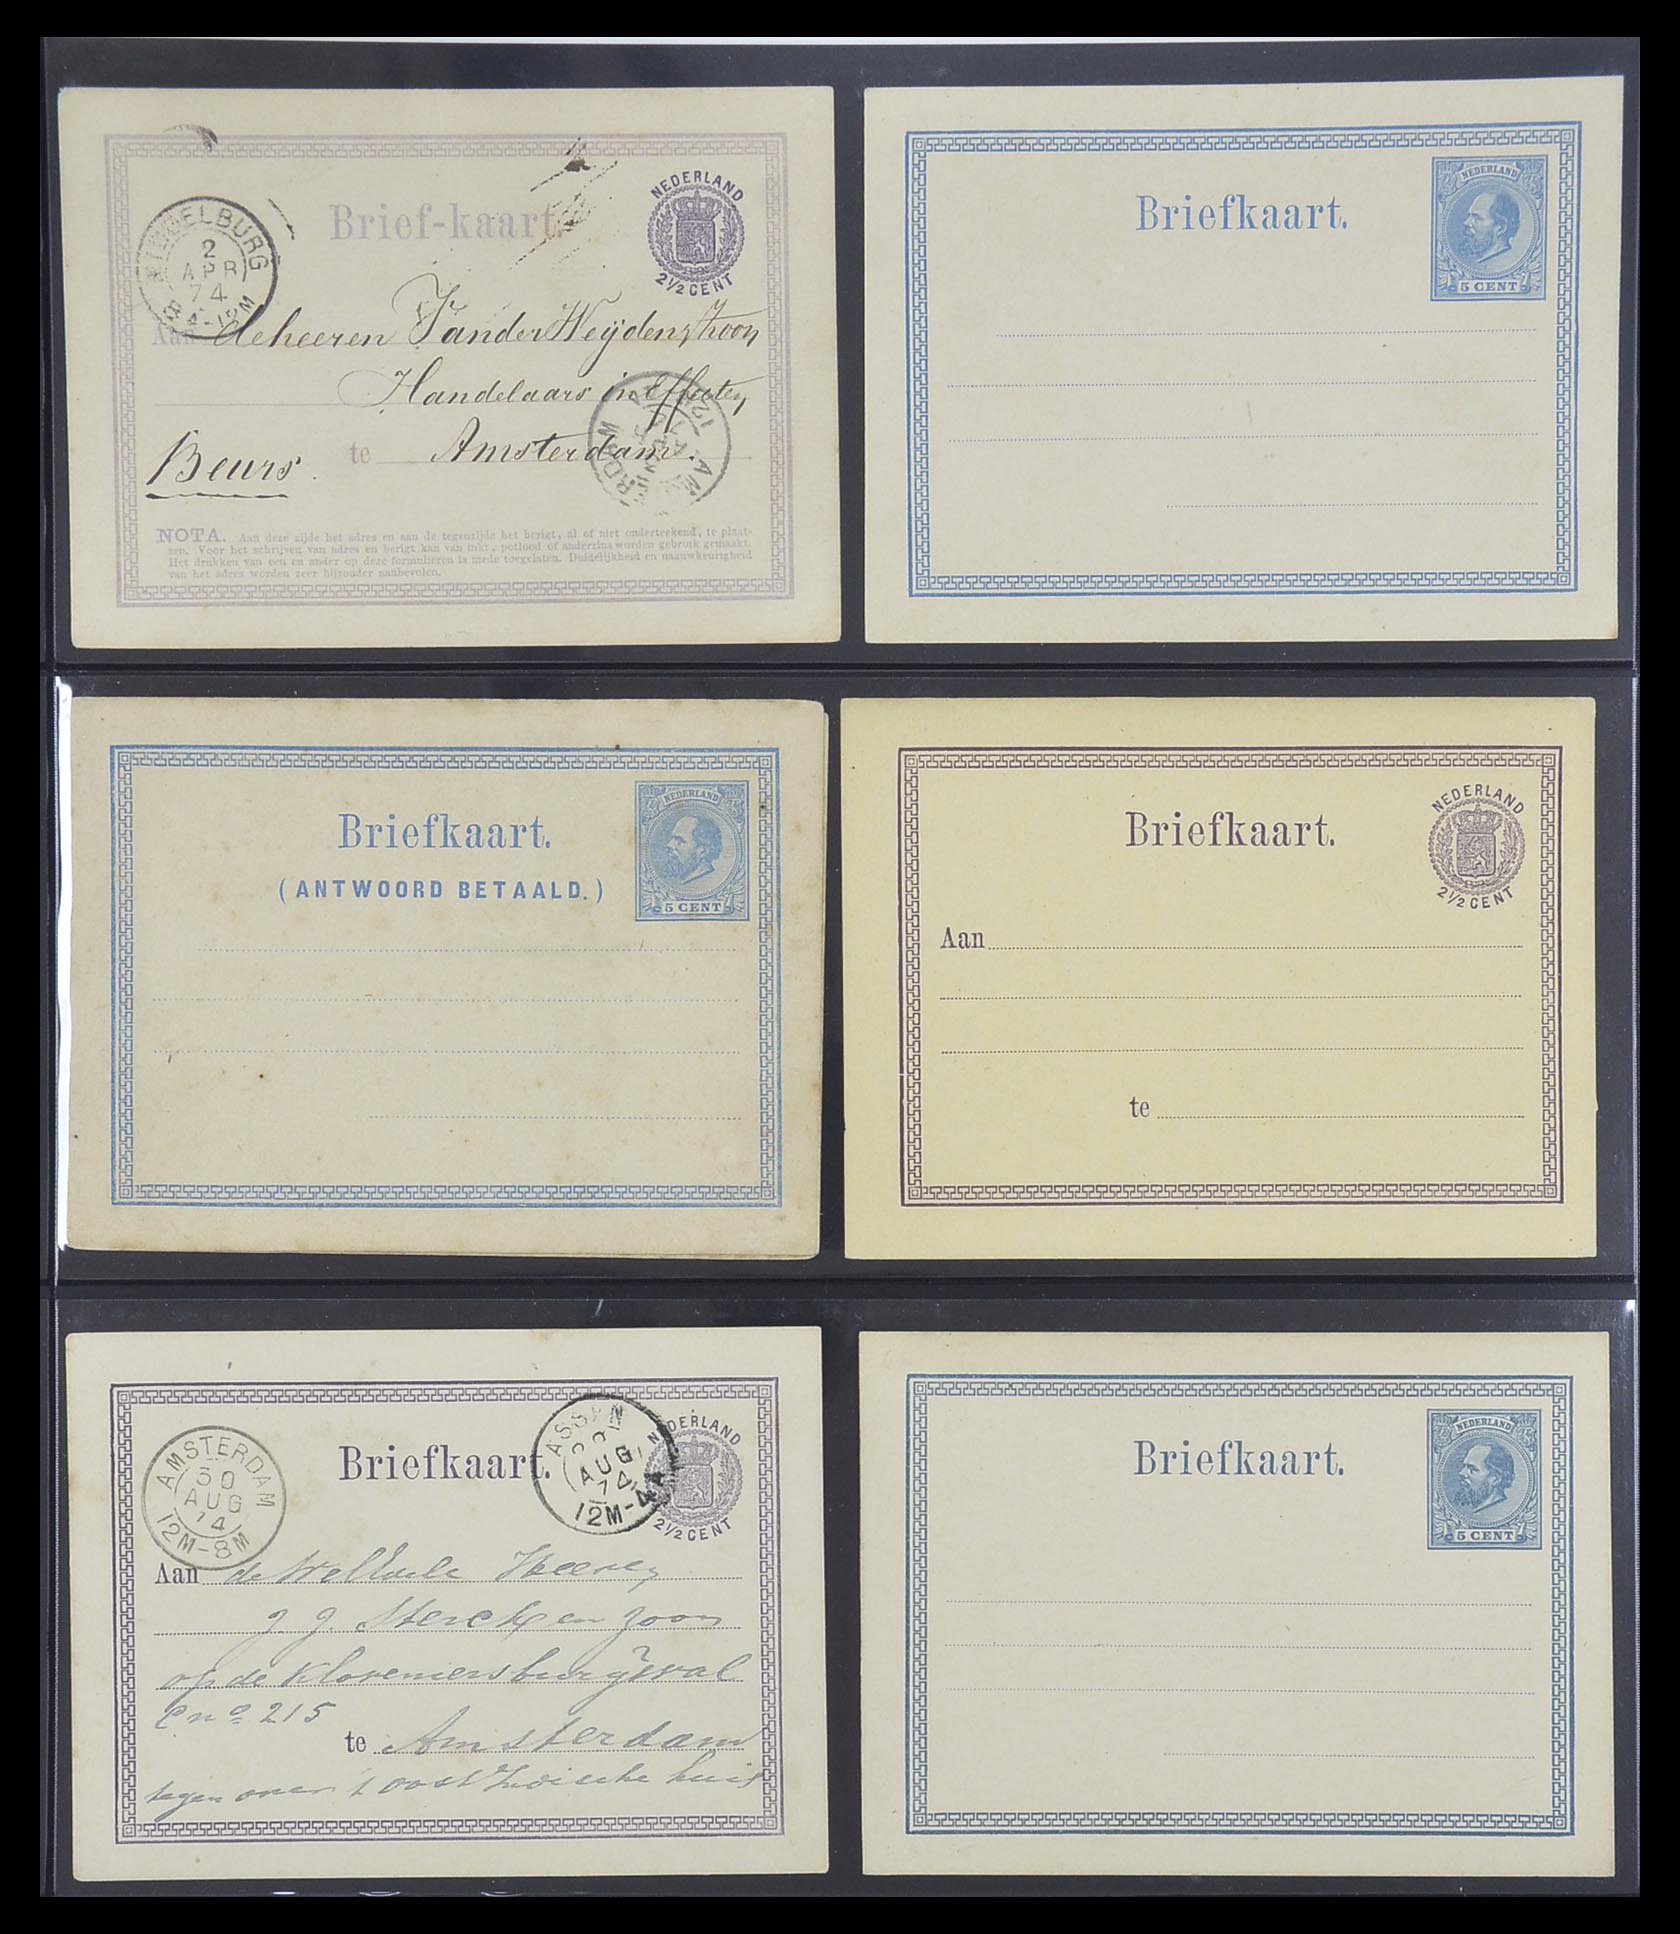 Brief-kaart.
NEDERLAND
2½ CENT
MIDDELBURG
2
APR
74
8M-12M
Aan de heeren Van der Weijden & Zoon
Handelaars in Effecten
Beurs. te Amsterdam.
NOTA. Aan deze zijde het adres en aan de tegenzijde het berigt, al of niet onderteekend, te plaat-
sen. Voor het schrijven van adres en berigt kan van inkt, potlood of anderzins worden gebruik gemaakt.
Het drukken van een en ander op deze formulieren is mede toegelaten. Duidelijkheid en naauwkeurigheid
van het adres worden zeer bijzonder aanbevolen.
Briefkaart.
NEDERLAND
5 CENT
Briefkaart.
(ANTWOORD BETAALD.)
NEDERLAND
5 CENT
Briefkaart.
NEDERLAND
2½ CENT
Aan
te
Briefkaart.
NEDERLAND
2½ CENT
AMSTERDAM
30
AUG
74
12M-8M
ASSEN
AUG
74
12M-4A
Aan de WelEdele Heeren
J. J. Sterck en zoon
op de Kloveniersburgwal
C no 215
te Amsterdam
tegen over 't oost Indische huis
Briefkaart.
NEDERLAND
5 CENT